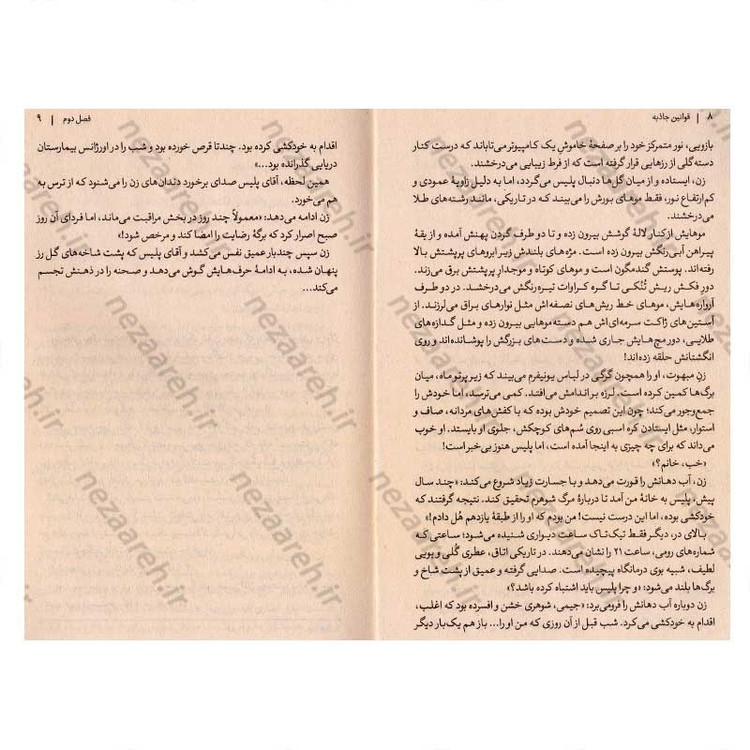 ۸ | قوانین جاذبه
بازویی، نور متمرکز خود را بر صفحهٔ خاموش یک کامپیوتر می‌تاباند که درست کنار
دسته‌گلی از رزهایی قرار گرفته است که از فرط زیبایی می‌درخشند.
زن، ایستاده و از میان گل‌ها دنبال پلیس می‌گردد، اما به دلیل زاویهٔ عمودی و
کم‌ارتفاع نور، فقط موهای بورش را می‌بیند که در تاریکی، مانند رشته‌های طلا
می‌درخشند.
موهایش از کنار لالهٔ گوشش بیرون زده و تا دو طرف گردن پهنش آمده و از یقهٔ
پیراهن آبی‌رنگش بیرون زده است. مژه‌های بلندش زیر ابروهای پرپشتش بالا
رفته‌اند. پوستش گندمگون است و موهای کوتاه و موجدارِ پرپشتش برق می‌زند.
دورِ فکش ریش تُنُکی تا گره کراوات تیره‌رنگش می‌درخشد. در دو طرف
آرواره‌هایش، موهای خط ریش‌های نصفه‌اش مثل نوارهای براق می‌لرزند. از
آستین‌های ژاکت سرمه‌ای‌اش هم دسته‌موهایی بیرون زده و مثل گدازه‌های
طلایی، دور مچ‌هایش جاری شده و دست‌های بزرگش را پوشانده‌اند و روی
انگشتانش حلقه زده‌اند!
زنِ مبهوت، او را همچون گرگی در لباس یونیفرم می‌بیند که زیر پرتو ماه، میان
برگ‌ها کمین کرده است. لرزه بر اندامش می‌افتد. کمی می‌ترسد، اما خودش را
جمع‌وجور می‌کند؛ چون این تصمیم خودش بوده که با کفش‌های مردانه، صاف و
استوار، مثل ایستادن کره اسبی روی سُم‌های کوچکش، جلوی او بایستد. او خوب
می‌داند که برای چه چیزی به اینجا آمده است، اما پلیس هنوز بی‌خبر است!
«خب، خانم؟»
زن، آب دهانش را قورت می‌دهد و با جسارت زیاد شروع می‌کند: «چند سال
پیش، پلیس به خانهٔ من آمد تا دربارهٔ مرگ شوهرم تحقیق کند. نتیجه گرفتند که
خودکشی بوده، اما این درست نیست! من بودم که او را از طبقهٔ یازدهم هُل دادم!»
بالای در، دیگر فقط تیک‌تاک ساعت دیواری شنیده می‌شود؛ ساعتی که
شماره‌های رومی، ساعت ۲۱ را نشان می‌دهند. در تاریکی اتاق، عطری گُلی و بویی
لطیف، شبیه بوی درمانگاه پیچیده است. صدایی گرفته و عمیق از پشت شاخ و
برگ‌ها بلند می‌شود: «و چرا پلیس باید اشتباه کرده باشد؟»
زن دوباره آب دهانش را فرومی‌برد: «جیمی، شوهری خشن و افسرده بود که اغلب،
اقدام به خودکشی می‌کرد. شب قبل از آن روزی که من او را... باز هم یک‌بار دیگر
فصل دوم | ۹
اقدام به خودکشی کرده بود. چندتا قرص خورده بود و شب را در اورژانس بیمارستان
دریایی گذرانده بود...»
همین لحظه، آقای پلیس صدای برخورد دندان‌های زن را می‌شنود که از ترس به
هم می‌خورد.
زن ادامه می‌دهد: «معمولاً چند روز در بخش مراقبت می‌ماند، اما فردای آن روز
صبح اصرار کرد که برگهٔ رضایت را امضا کند و مرخص شود!»
زن سپس چندبار عمیق نفس می‌کشد و آقای پلیس که پشت شاخه‌های گل رز
پنهان شده، به ادامهٔ حرف‌هایش گوش می‌دهد و صحنه را در ذهنش تجسم
می‌کند...
nezaareh.ir